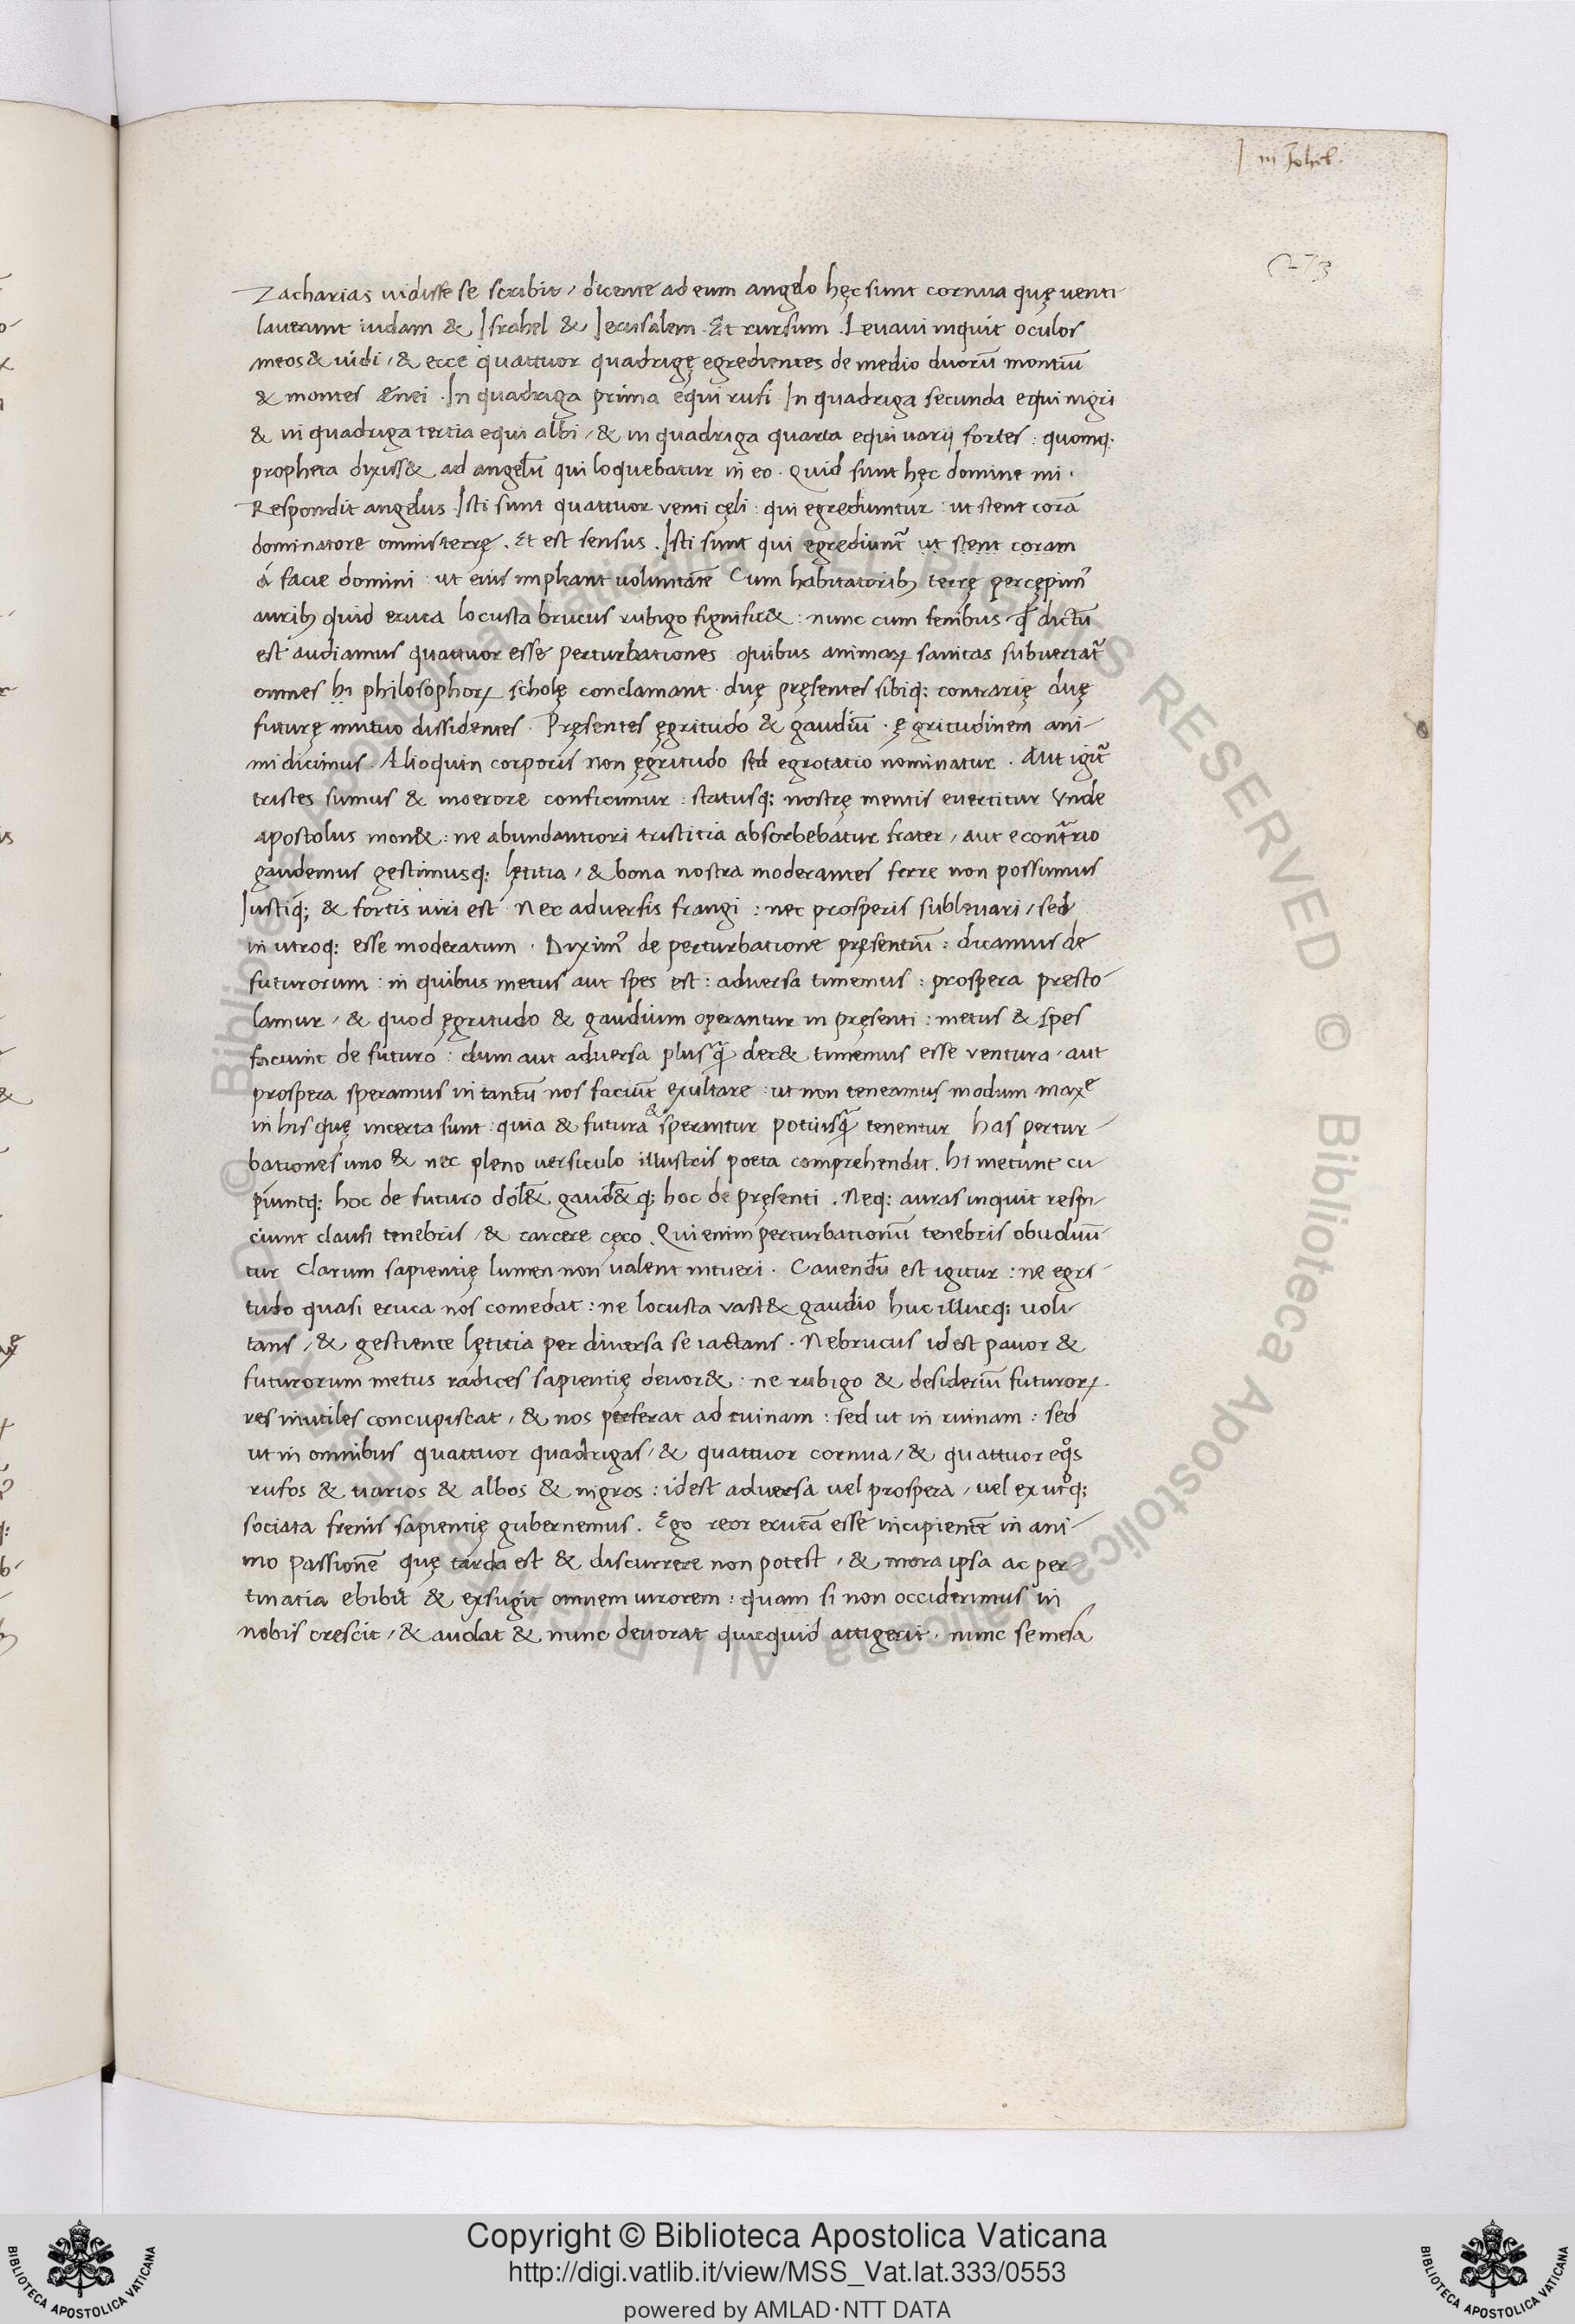 In Iohel.
273
Zacharias uidisse se scribit / dicente ad eum angelo hęc sunt cornua quę uenti
lauerunt iudam & Israhel & Ierusalem. Et rursum. Leuaui inquit oculos
meos & uidi / & ecce quattuor quadrigę egredientes de medio duorū montiū
& montes ænei. In quadriga prima equi rufi In quadriga secunda equi nigri
& in quadriga tertia equi albi / & in quadriga quarta equi uarij fortes : quomq.
propheta dixiss& ad angelū qui loquebatur in eo. Quid sunt hęc domine mi.
Respondit angelus Isti sunt quattuor venti cęli : qui egrediuntur : ut stent corā
dominatore omnis terrę. Et est sensus. Isti sunt qui egrediunt᷑ ut stent coram
á facie domini : ut eius impleant uoluntatē Cum habitatorib; terrę percępim᾽
aurib; quid eruca locusta brucus rubigo significe& : nunc cum senibus qđ dictū
est audiamus quattuor esse perturbationes : quibus animaꝝ sanitas subuertat᷑
omnes hi philosophoꝝ scholę conclamant. duę pręsentes sibiq: contrarię duę
futurę mutuo dissidentes. Pręsentes ęgritudo & gaudiū. ęgritudinem ani-
mi dicimus. Alioquin corporis non ęgritudo sed egrotatio nominatur. Aut igit᷑
tristes sumus & moerore conficimur : statusq: nostrę mentis euertitur Vnde
apostolus mon& : ne abundantiori tristitia absorbebatur frater / aut econt᷑rio
gaudemus gestimusq: lętitia / & bona nostra moderantes ferre non possumus
Iustiq; & fortis uiri est nec aduersis frangi : nec prosperis subleuari / sed
in utroq: esse moderatum. Dixim᾽ de perturbatione pręsentiū : dicamus de
futurorum : in quibus metus aut spes est : aduersa timemus : prospera presto-
lamur / & quod ęgritudo & gaudium operantur in pręsenti : metus & spes
faciunt de futuro : dum aut aduersa plusq̃ dec& timemus esse ventura / aut
prospera speramus in tantū nos faciūt exultare : ut non teneamus modum maxe
in his quę incerta sunt : quia & futura & sperantur potiusq̃ tenentur has pertur-
bationes uno & nec pleno uersiculo illustris poeta comprehendit. hi metunt cu-
piuntq: hoc de futuro dol& gaud&q; hoc de pręsenti. Neq: auras inquit respi-
ciunt clausi tenebris / & carcere cęco. Qui enim perturbationū tenebris obuoluū-
tur Clarum sapientię lumen non ualent intueri. Cauendū est igitur : ne egri-
tudo quasi eruca nos comedat : ne locusta vast& gaudio huc illucq: uoli-
tans / & gestiente lętitia per diuersa se iactans. Ne brucus idest pauor &
futurorum metus radices sapientię deuor& : ne rubigo & desideriū futuroꝝ
res inutiles concupiscat / & nos perferat ad ruinam : sed ut in ruinam : sed
ut in omnibus quattuor quadrigas / & quattuor cornua / & quattuor eqos
rufos & uarios & albos & nigros : idest aduersa uel prospera / uel ex utoq;
sociata frenis sapientię gubernemus. Ego reor erucā esse incipientē in ani-
mo passionē quę tarda est & discurrere non potest / & mora ipsa ac per-
tinatia ebibit & exsugit omnem uirorem : quam si non occiderimus in
nobis crescit / & audat & nunc deuorat quicquid attigerit. nunc semesa
© Biblioteca Apostolica Vaticana ALL RIGHTS RESERVED
Copyright © Biblioteca Apostolica Vaticana
http://digi.vatlib.it/view/MSS_Vat.lat.333/0553
powered by AMLAD·NTT DATA
BIBLIOTECA APOSTOLICA VATICANA
BIBLIOTECA APOSTOLICA VATICANA